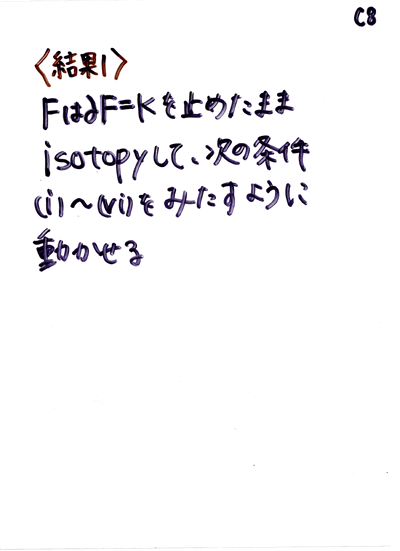 C8
〈結果1〉
Fは∂F=Kを止めたまま
isotopyして、次の条件
(i)～(vi)をみたすように
動かせる